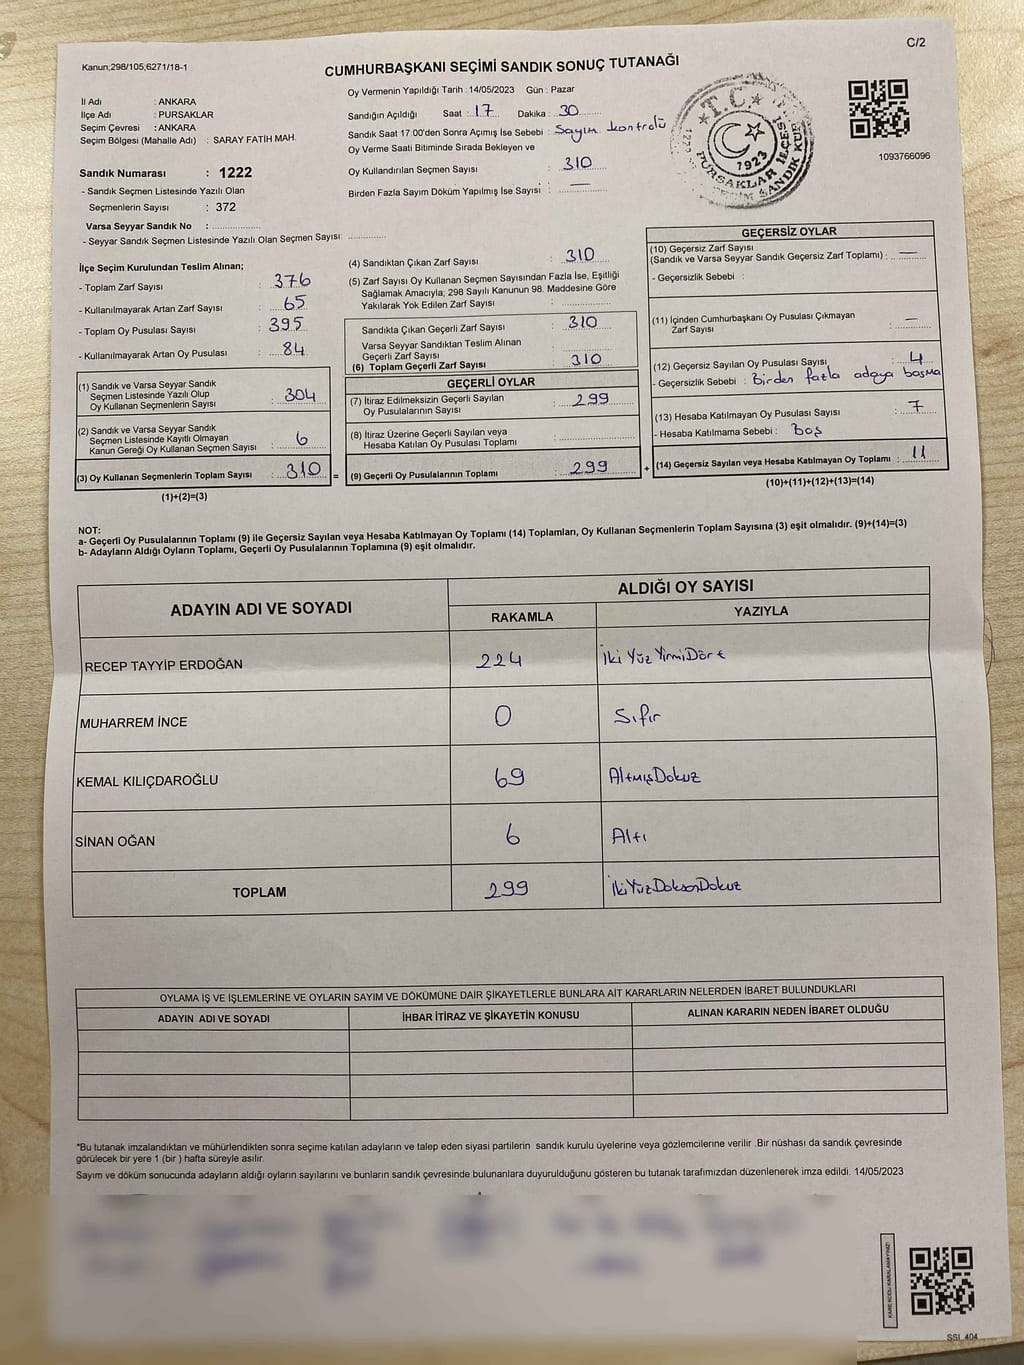 C/2
Kanun;298/105,6271/18-1
CUMHURBAŞKANI SEÇİMİ SANDIK SONUÇ TUTANAĞI
Oy Vermenin Yapıldığı Tarih :14/05/2023 Gün : Pazar
İl Adı : ANKARA
İlçe Adı : PURSAKLAR
Seçim Çevresi : ANKARA
Seçim Bölgesi (Mahalle Adı) : SARAY FATİH MAH.
Sandığın Açıldığı Saat : 17 Dakika : 30
Sandık Saat 17:00'den Sonra Açımış İse Sebebi : Sayım kontrolü
Oy Verme Saati Bitiminde Sırada Bekleyen ve
Oy Kullandırılan Seçmen Sayısı : 310
Birden Fazla Sayım Döküm Yapılmış İse Sayısı : —
T.C.
1923
PURSAKLAR İLÇESİ
1093766096
Sandık Numarası : 1222
- Sandık Seçmen Listesinde Yazılı Olan
Seçmenlerin Sayısı : 372
Varsa Seyyar Sandık No : ................
- Seyyar Sandık Seçmen Listesinde Yazılı Olan Seçmen Sayısı: .............
İlçe Seçim Kurulundan Teslim Alınan;
- Toplam Zarf Sayısı : 376
- Kullanılmayarak Artan Zarf Sayısı : 65
- Toplam Oy Pusulası Sayısı : 395
- Kullanılmayarak Artan Oy Pusulası : 84
(1) Sandık ve Varsa Seyyar Sandık
Seçmen Listesinde Yazılı Olup
Oy Kullanan Seçmenlerin Sayısı : 304
(2) Sandık ve Varsa Seyyar Sandık
Seçmen Listesinde Kayıtlı Olmayan
Kanun Gereği Oy Kullanan Seçmen Sayısı : 6
(3) Oy Kullanan Seçmenlerin Toplam Sayısı : 310 =
(1)+(2)=(3)
(4) Sandıktan Çıkan Zarf Sayısı : 310
(5) Zarf Sayısı Oy Kullanan Seçmen Sayısından Fazla İse, Eşitliği
Sağlamak Amacıyla; 298 Sayılı Kanunun 98. Maddesine Göre
Yakılarak Yok Edilen Zarf Sayısı : ................
Sandıkta Çıkan Geçerli Zarf Sayısı : 310
Varsa Seyyar Sandıktan Teslim Alınan
Geçerli Zarf Sayısı : ................
(6) Toplam Geçerli Zarf Sayısı : 310
GEÇERLİ OYLAR
(7) İtiraz Edilmeksizin Geçerli Sayılan
Oy Pusulalarının Sayısı : 299
(8) İtiraz Üzerine Geçerli Sayılan veya
Hesaba Katılan Oy Pusulası Toplamı : ................
(9) Geçerli Oy Pusulalarının Toplamı : 299 +
GEÇERSİZ OYLAR
(10) Geçersiz Zarf Sayısı
(Sandık ve Varsa Seyyar Sandık Geçersiz Zarf Toplamı) : —
- Geçersizlik Sebebi :
(11) İçinden Cumhurbaşkanı Oy Pusulası Çıkmayan
Zarf Sayısı : —
(12) Geçersiz Sayılan Oy Pusulası Sayısı : 4
- Geçersizlik Sebebi : Birden fazla adaya basma
(13) Hesaba Katılmayan Oy Pusulası Sayısı : 7
- Hesaba Katılmama Sebebi : Boş
(14) Geçersiz Sayılan veya Hesaba Katılmayan Oy Toplamı : 11
(10)+(11)+(12)+(13)=(14)
NOT:
a- Geçerli Oy Pusulalarının Toplamı (9) ile Geçersiz Sayılan veya Hesaba Katılmayan Oy Toplamı (14) Toplamları, Oy Kullanan Seçmenlerin Toplam Sayısına (3) eşit olmalıdır. (9)+(14)=(3)
b- Adayların Aldığı Oyların Toplamı, Geçerli Oy Pusulalarının Toplamına (9) eşit olmalıdır.
ADAYIN ADI VE SOYADI
ALDIĞI OY SAYISI
RAKAMLA YAZIYLA
RECEP TAYYİP ERDOĞAN 224 İki Yüz YirmiDört
MUHARREM İNCE 0 Sıfır
KEMAL KILIÇDAROĞLU 69 AltmışDokuz
SİNAN OĞAN 6 Altı
TOPLAM 299 İkiYüzDoksanDokuz
OYLAMA İŞ VE İŞLEMLERİNE VE OYLARIN SAYIM VE DÖKÜMÜNE DAİR ŞİKAYETLERLE BUNLARA AİT KARARLARIN NELERDEN İBARET BULUNDUKLARI
ADAYIN ADI VE SOYADI İHBAR İTİRAZ VE ŞİKAYETİN KONUSU ALINAN KARARIN NEDEN İBARET OLDUĞU
*Bu tutanak imzalandıktan ve mühürlendikten sonra seçime katılan adayların ve talep eden siyasi partilerin sandık kurulu üyelerine veya gözlemcilerine verilir .Bir nüshası da sandık çevresinde
görülecek bir yere 1 (bir ) hafta süreyle asılır.
Sayım ve döküm sonucunda adayların aldığı oyların sayılarını ve bunların sandık çevresinde bulunanlara duyurulduğunu gösteren bu tutanak tarafımızdan düzenlenerek imza edildi. 14/05/2023
KARE KODU KARALAMAYINIZ!
SSI_404